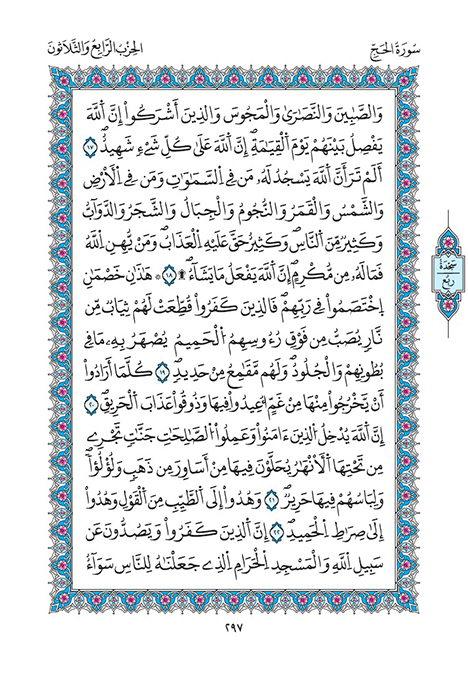 سُورَةُ الحَجّ
الحِزْبُ الرَّابِعُ وَالثَّلَاثُونَ
وَالصَّٰبِينَ وَالنَّصَٰرَىٰ وَالْمَجُوسَ وَالذِينَ أَشْرَكُوٓاْ إِنَّ اَ۬للَّهَ
يَفْصِلُ بَيْنَهُمْ يَوْمَ اَ۬لْقِيَٰمَةِۖ إِنَّ اَ۬للَّهَ عَلَىٰ كُلِّ شَےْءٖ شَهِيدٌۖ ١٧
أَلَمْ تَرَ أَنَّ اَ۬للَّهَ يَسْجُدُ لَهُۥ مَن فِے اِ۬لسَّمَٰوَٰتِ وَمَن فِے اِ۬لَارْضِ
وَالشَّمْسُ وَالْقَمَرُ وَالنُّجُومُ وَالْجِبَالُ وَالشَّجَرُ وَالدَّوَآبُّ
وَكَثِيرٞ مِّنَ اَ۬لنَّاسِۖ وَكَثِيرٌ حَقَّ عَلَيْهِ اِ۬لْعَذَابُۖ وَمَنْ يُّهِنِ اِ۬للَّهُ
فَمَا لَهُۥ مِن مُّكْرِمٍۖ اِنَّ اَ۬للَّهَ يَفْعَلُ مَا يَشَآءُۖ ۩ ١٨ ۞ هَٰذَٰنِ خَصْمَٰنِ
اِ۪خْتَصَمُواْ فِے رَبِّهِمْۖ فَالذِينَ كَفَرُواْ قُطِّعَتْ لَهُمْ ثِيَابٞ مِّن
نّ۪ارٖ يُصَبُّ مِن فَوْقِ رُءُوسِهِمُ اُ۬لْحَمِيمُ يُصْهَرُ بِهِۦ مَا فِے
بُطُونِهِمْ وَالْجُلُودُۖ وَلَهُم مَّقَٰمِعُ مِنْ حَدِيدٖۖ ١٩ كُلَّمَآ أَرَادُوٓاْ
أَنْ يَّخْرُجُواْ مِنْهَا مِنْ غَمٍّ ا۟عِيدُواْ فِيهَا وَذُوقُواْ عَذَابَ اَ۬لْحَرِيقِۖ ٢٠
إِنَّ اَ۬للَّهَ يُدْخِلُ اُ۬لذِينَ ءَامَنُواْ وَعَمِلُواْ اُ۬لصَّٰلِحَٰتِ جَنَّٰتٖ تَجْرِے
مِن تَحْتِهَا اَ۬لَانْهَٰرُ يُحَلَّوْنَ فِيهَا مِنْ أَسَاوِرَ مِن ذَهَبٖ وَلُؤْلُؤاٗۖ
وَلِبَاسُهُمْ فِيهَا حَرِيرٞۖ ٢١ وَهُدُوٓاْ إِلَى اَ۬لطَّيِّبِ مِنَ اَ۬لْقَوْلِ وَهُدُوٓاْ
إِلَىٰ صِرَٰطِ اِ۬لْحَمِيدِۖ ٢٢ إِنَّ اَ۬لذِينَ كَفَرُواْ وَيَصُدُّونَ عَن
سَبِيلِ اِ۬للَّهِ وَالْمَسْجِدِ اِ۬لْحَرَامِ اِ۬لذِے جَعَلْنَٰهُ لِلنَّاسِ سَوَآءٌ
سَجْدَة
رُبع
٢٩٧